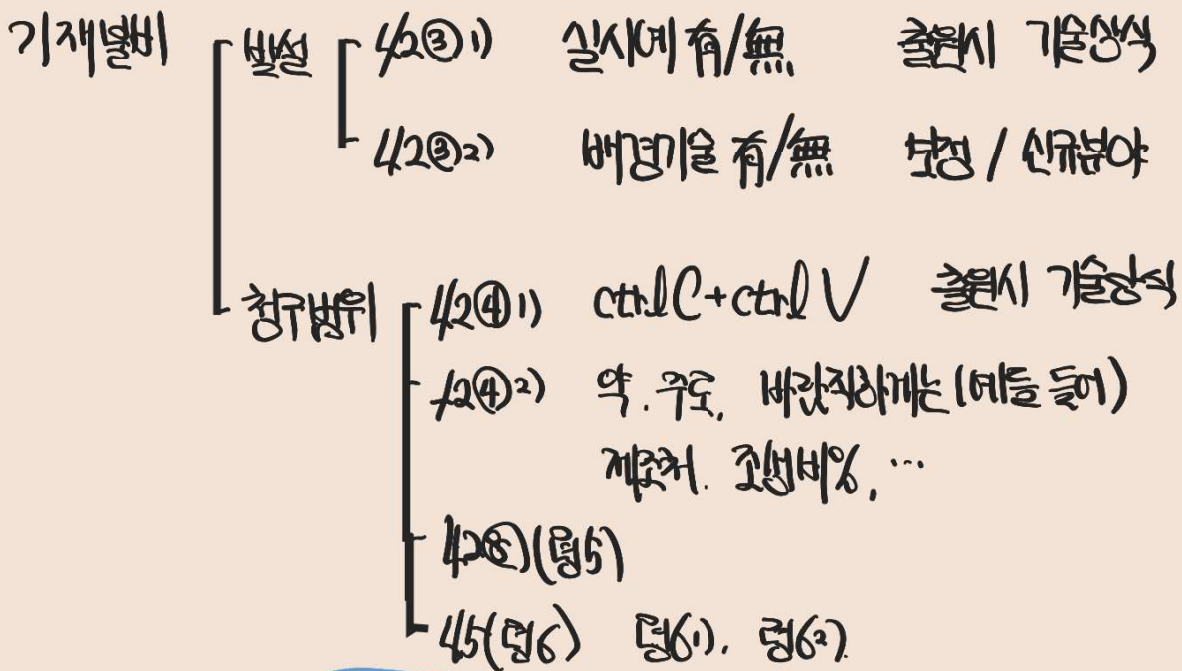 기재불비
발설 42③1) 실시예 有/無 출원시 기술상식
42③2) 배경기술 有/無 보정 / 신규분야
청구범위 42④1) ctrl C + ctrl V 출원시 기술상식
42④2) 약. 주로, 바람직하게는 (예를 들어)
제조처. 조성비%, …
42⑧) (령5)
45(령6) 령6 1). 령6 2).